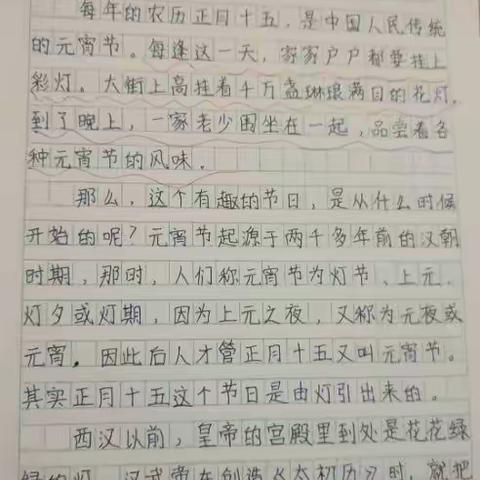 每年的农历正月十五，是中国人民传统
的元宵节。每逢这一天，家家户户都要挂上
彩灯。大街上高挂着千万盏琳琅满目的花灯，
到了晚上，一家老少围坐在一起，品尝着各
种元宵节的风味。
那么，这个有趣的节日，是从什么时候
开始的呢？元宵节起源于两千多年前的汉朝
时期，那时，人们称元宵节为灯节、上元、
灯夕或灯期，因为上元之夜，又称为元夜或
元宵。因此后人才管正月十五又叫元宵节。
其实正月十五这个节日是由灯引出来的。
西汉以前，皇帝的宫殿里到处是花花绿
绿的灯。汉武帝在创造《太初历》时，就把